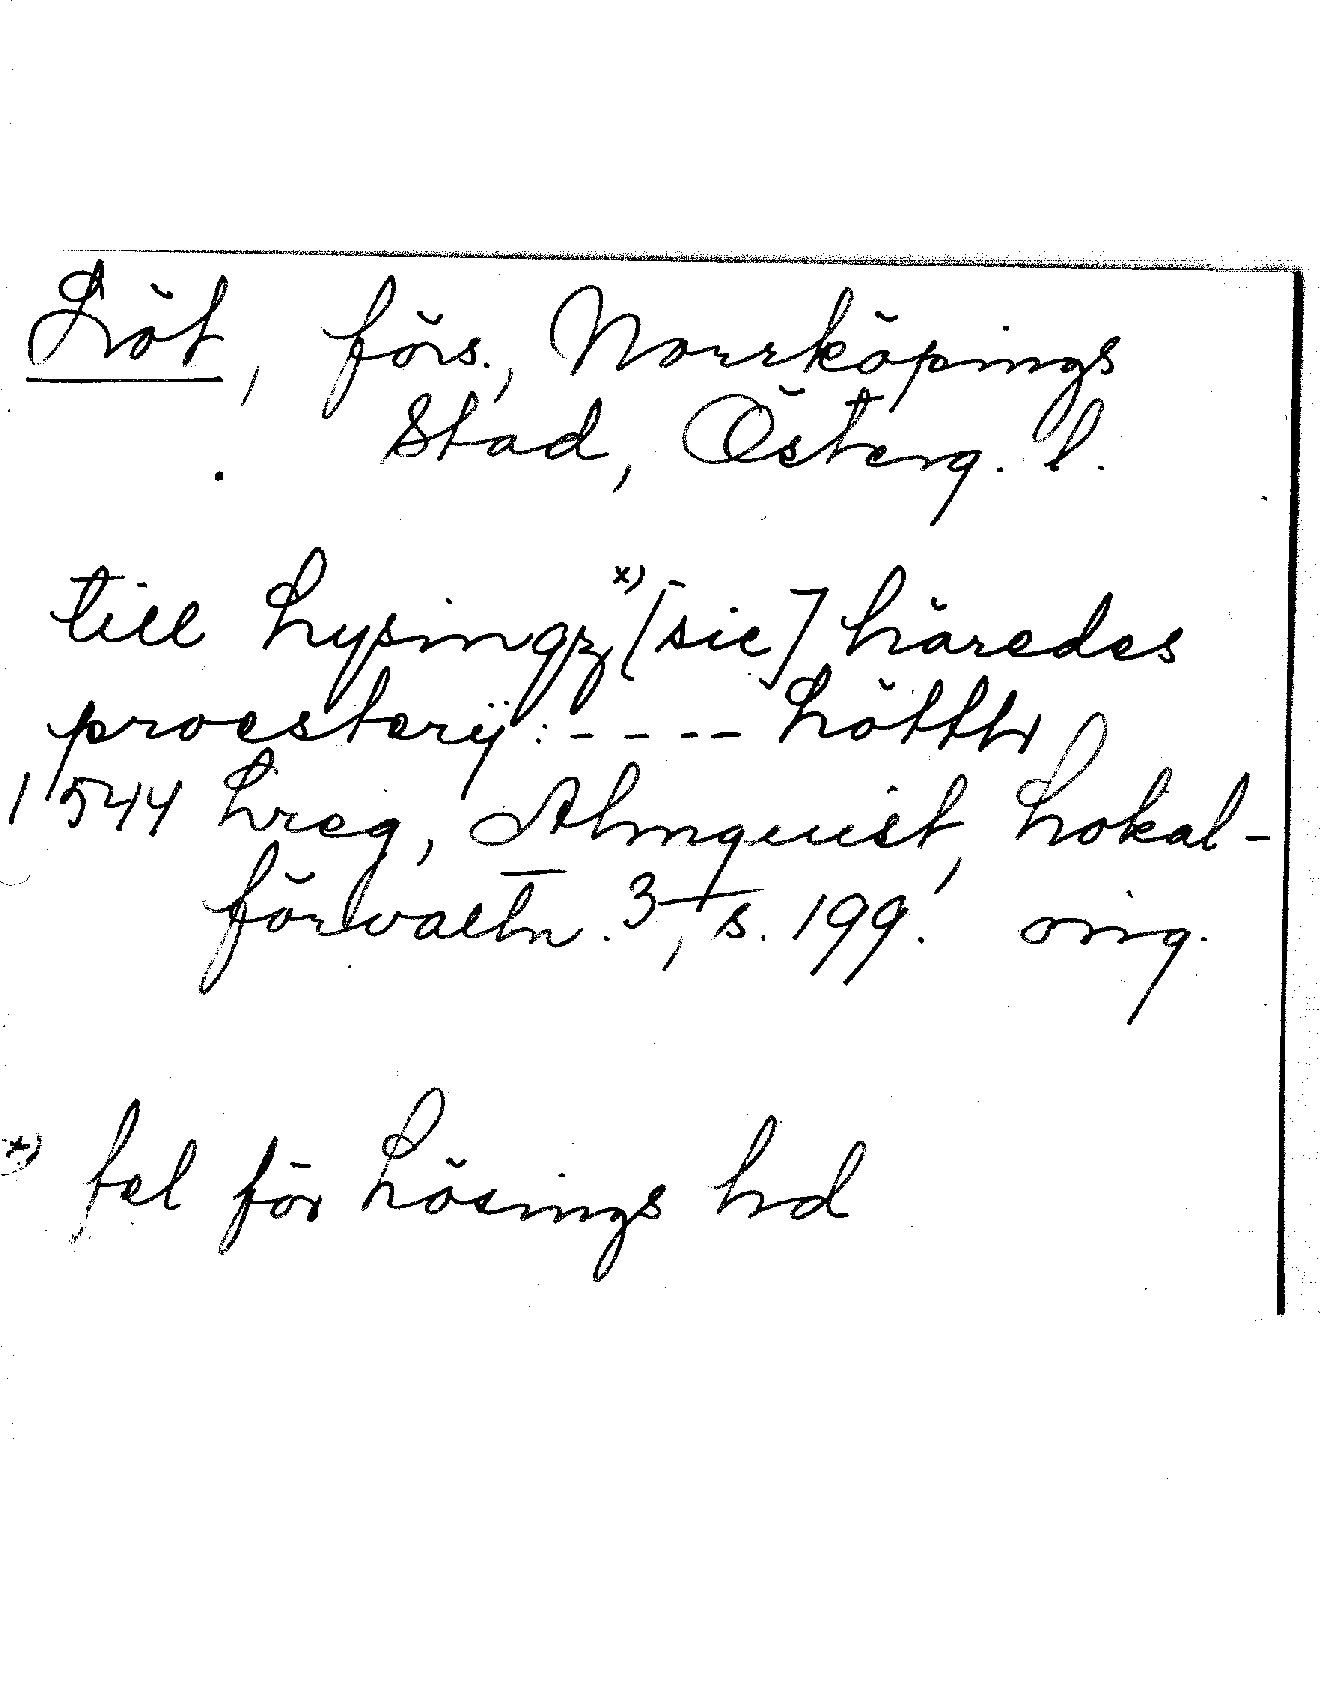 Löt, förs., Norrköpings
stad, Österg. l.
till Lysingz *) [sic] häredes
proesterij: ---- Lötth
1544 Lreg, Almquist, Lokal-
förvaltn. 3, s. 199. orig.
*) fel för Lösings hd